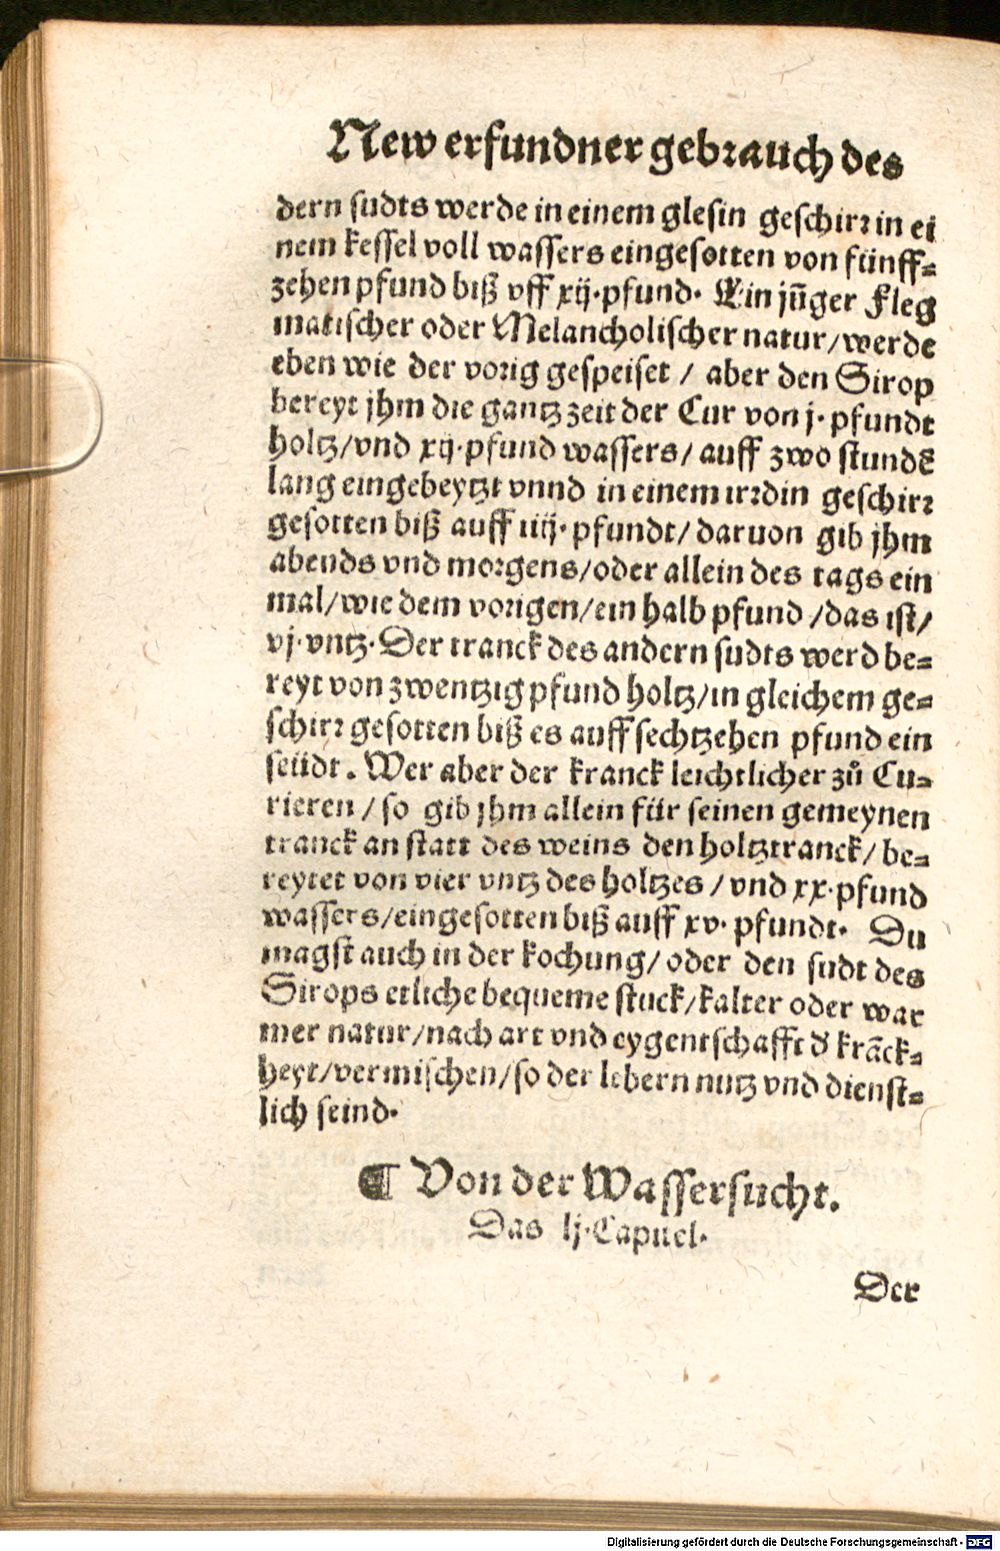 New erfundner gebrauch des
dern sudts werde in einem glesin geschirr in ei
nem kessel voll wassers eingesotten von fünff⸗
zehen pfund biß vff xij. pfund. Ein jũger Fleg
matischer oder Melancholischer natur / werde
eben wie der vorig gespeiset / aber den Sirop
bereyt jhm die gantz zeit der Cur von j. pfundt
holtz / vnd xij. pfund wassers / auff zwo stundẽ
lang eingebeytzt vnnd in einem irrdin geschirr
gesotten biß auff iiij. pfundt / daruon gib jhm
abends vnd morgens / oder allein des tags ein
mal / wie dem vorigen / ein halb pfund / das ist /
vj. vntz. Der tranck des andern sudts werd be⸗
reyt von zwentzig pfund holtz / in gleichem ge⸗
schirr gesotten biß es auff sechtzehen pfund ein
seüdt. Wer aber der kranck leichtlicher zů Cu⸗
rieren / so gib jhm allein für seinen gemeynen
tranck an statt des weins den holtztranck / be⸗
reytet von vier vntz des holtzes / vnd xx. pfund
wassers / eingesotten biß auff xv. pfundt. Du
magst auch in der kochung / oder den sudt des
Sirops etliche bequeme stuck / kalter oder war
mer natur / nach art vnd eygentschafft d' krãck⸗
heyt / vermischen / so der lebern nutz vnd dienst⸗
lich seind.
¶ Von der Wassersucht.
Das lj. Capitel.
Der
Digitalisierung gefördert durch die Deutsche Forschungsgemeinschaft - DFG